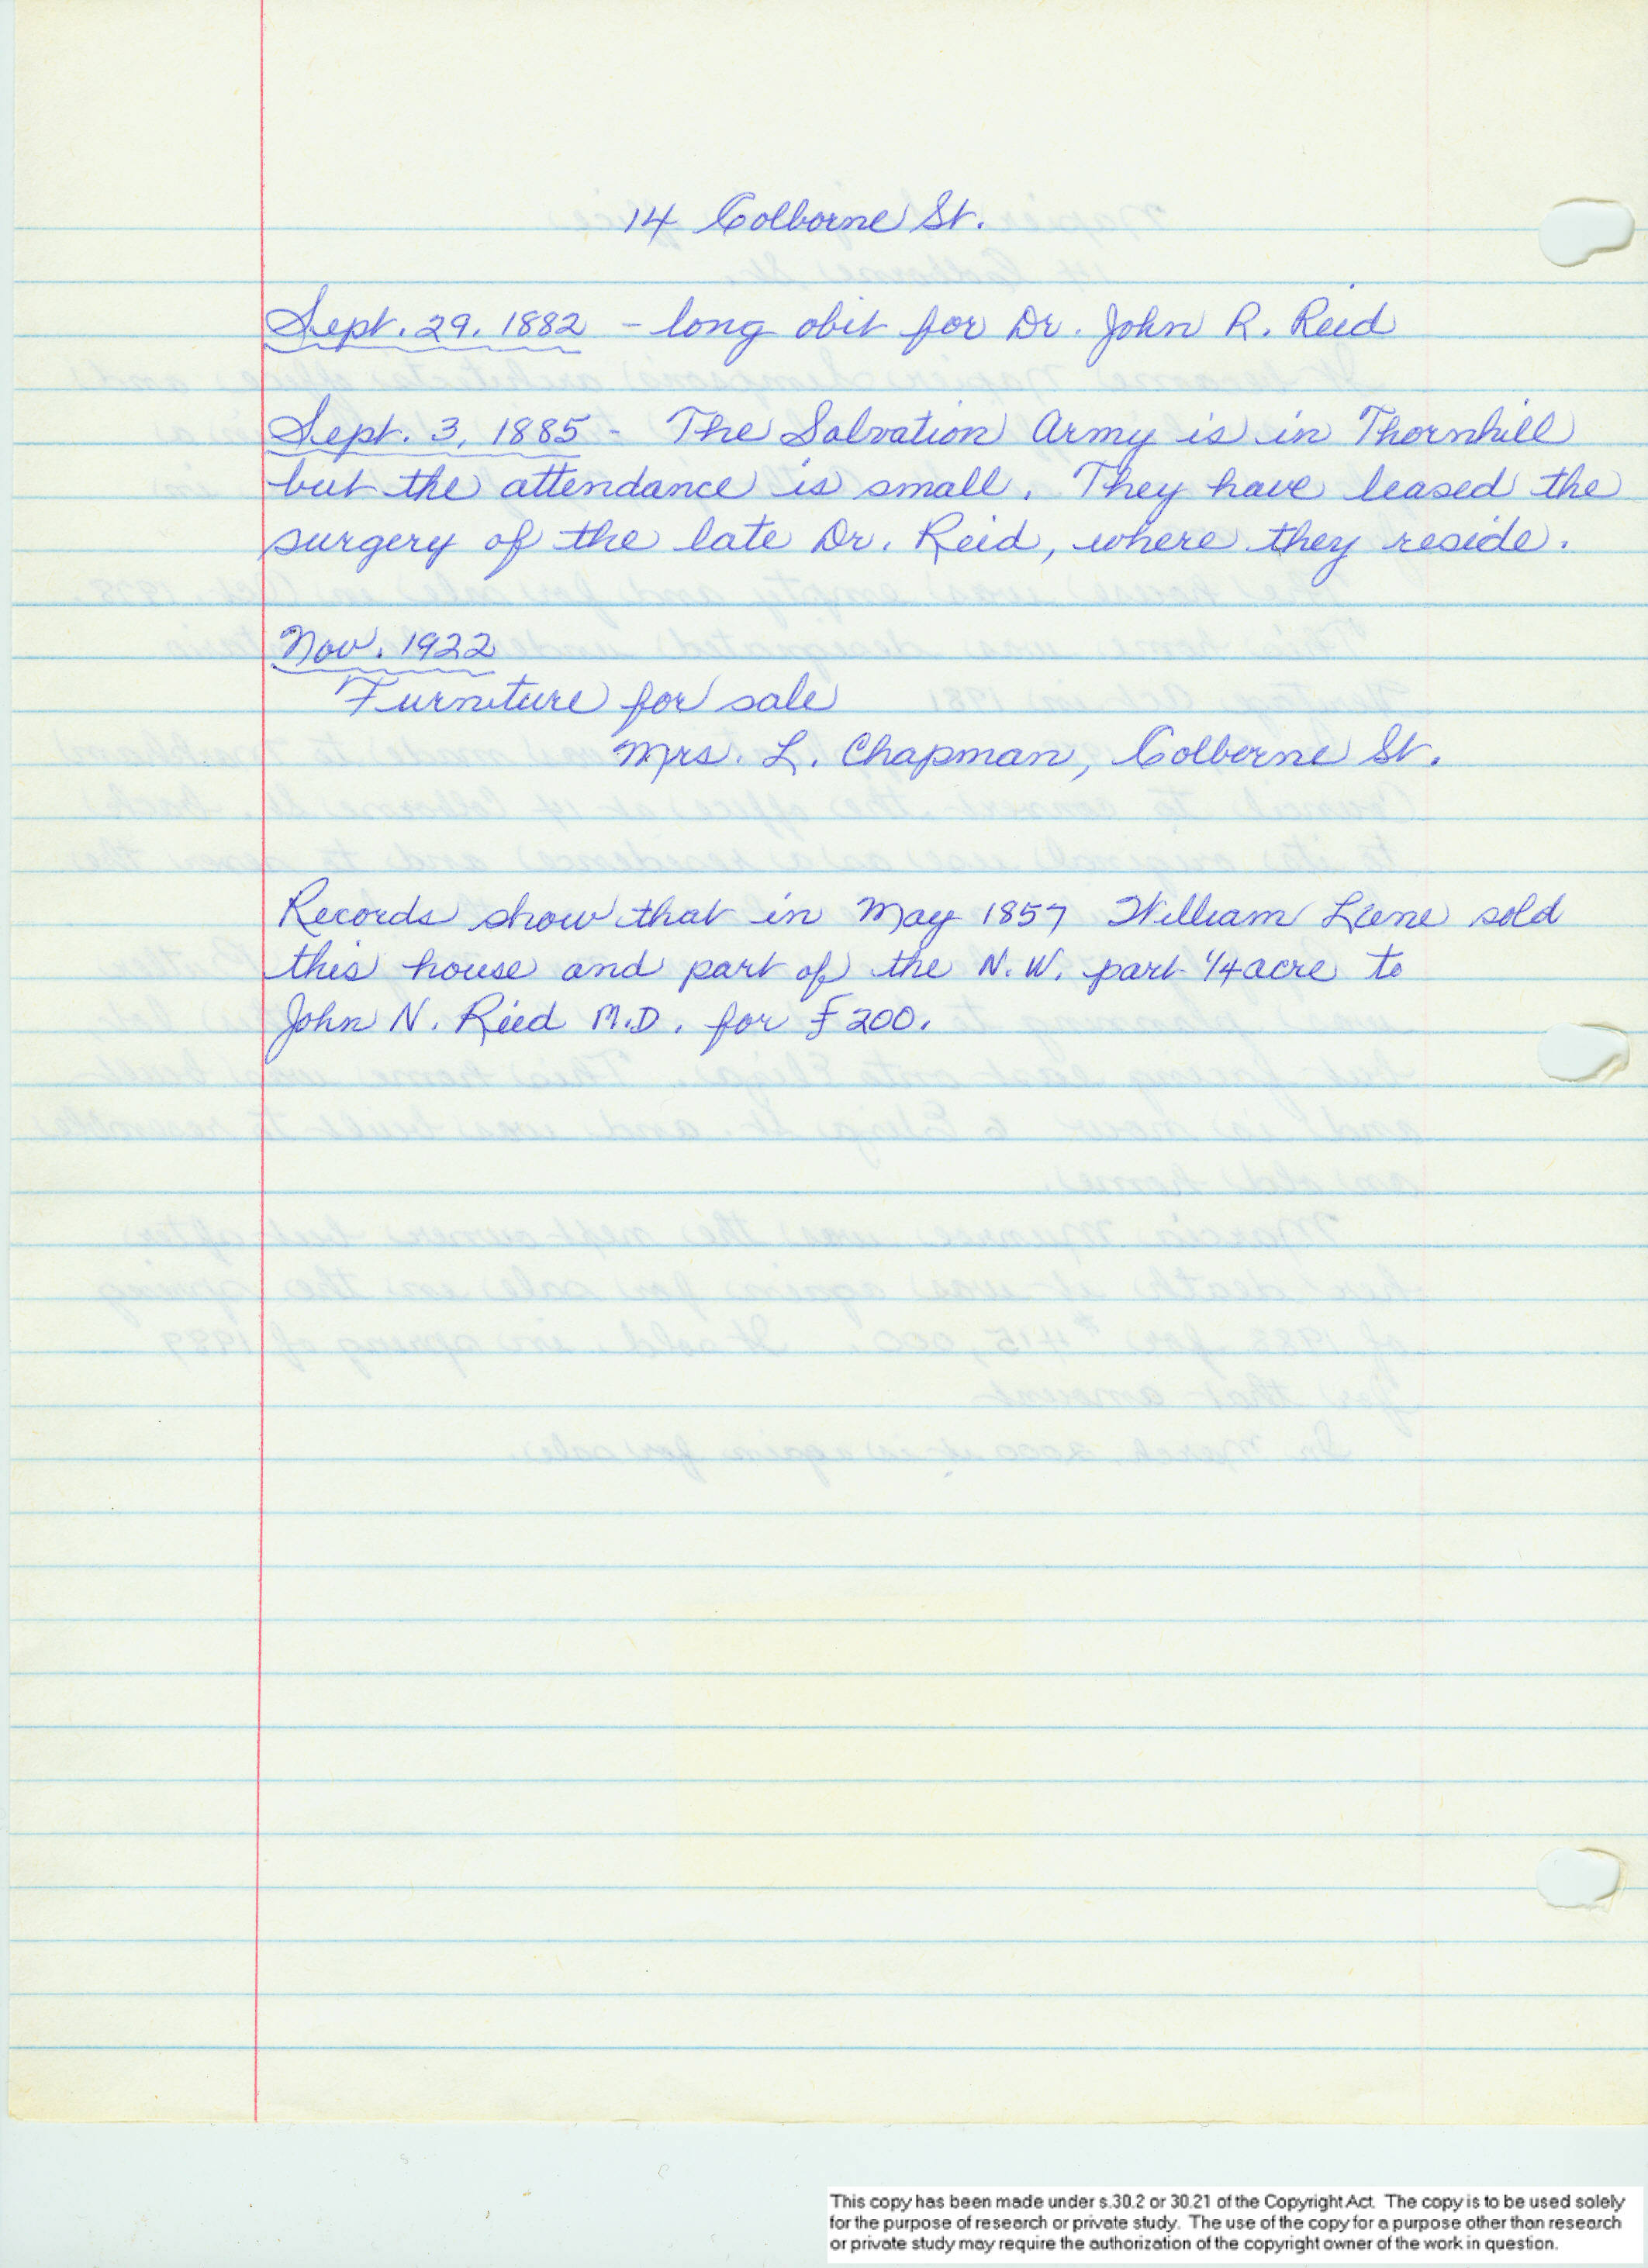 14 Colborne St.
Sept. 29. 1882 - long obit for Dr. John R. Reid
Sept. 3, 1885 - The Salvation Army is in Thornhill
but the attendance is small. They have leased the
surgery of the late Dr. Reid, where they reside.
Nov. 1922
Furniture for sale
Mrs. L. Chapman, Colborne St.
Records show that in May 1857 William sold
this house and part of the N.W. part 1/4 acre to
John N. Reid M.D. for £200.
This copy has been made under s.30.2 or 30.21 of the Copyright Act. The copy is to be used solely
for the purpose of research or private study. The use of the copy for a purpose other than research
or private study may require the authorization of the copyright owner of the work in question.